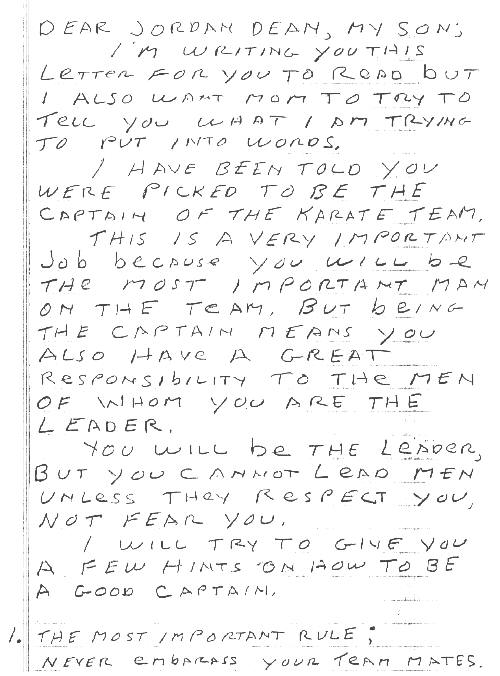 DEAR JORDAN DEAN, MY SON;
I'M WRITING YOU THIS
LETTER FOR YOU TO READ bUT
I ALSO WANT MOM TO TRY TO
TELL YOU WHAT I AM TRYING
TO PUT INTO WORDS.
I HAVE BEEN TOLD YOU
WERE PICKED TO BE THE
CAPTAIN OF THE KARATE TEAM.
THIS IS A VERY IMPORTANT
Job because YOU WILL be
THE MOST IMPORTANT MAN
ON THE TEAM. BUT bEING
THE CAPTAIN MEANS YOU
ALSO HAVE A GREAT
RESPONSIbILITY TO THE MEN
OF WHOM YOU ARE THE
LEADER.
YOU WILL be THE LEADER,
BUT YOU CANNOT LEAD MEN
UNLESS THEY RESPECT YOU,
NOT FEAR YOU.
I WILL TRY TO GIVE YOU
A FEW HINTS ON HOW TO BE
A GOOD CAPTAIN.
1. THE MOST IMPORTANT RULE;
NEVER EMBARASS YOUR TEAM MATES.